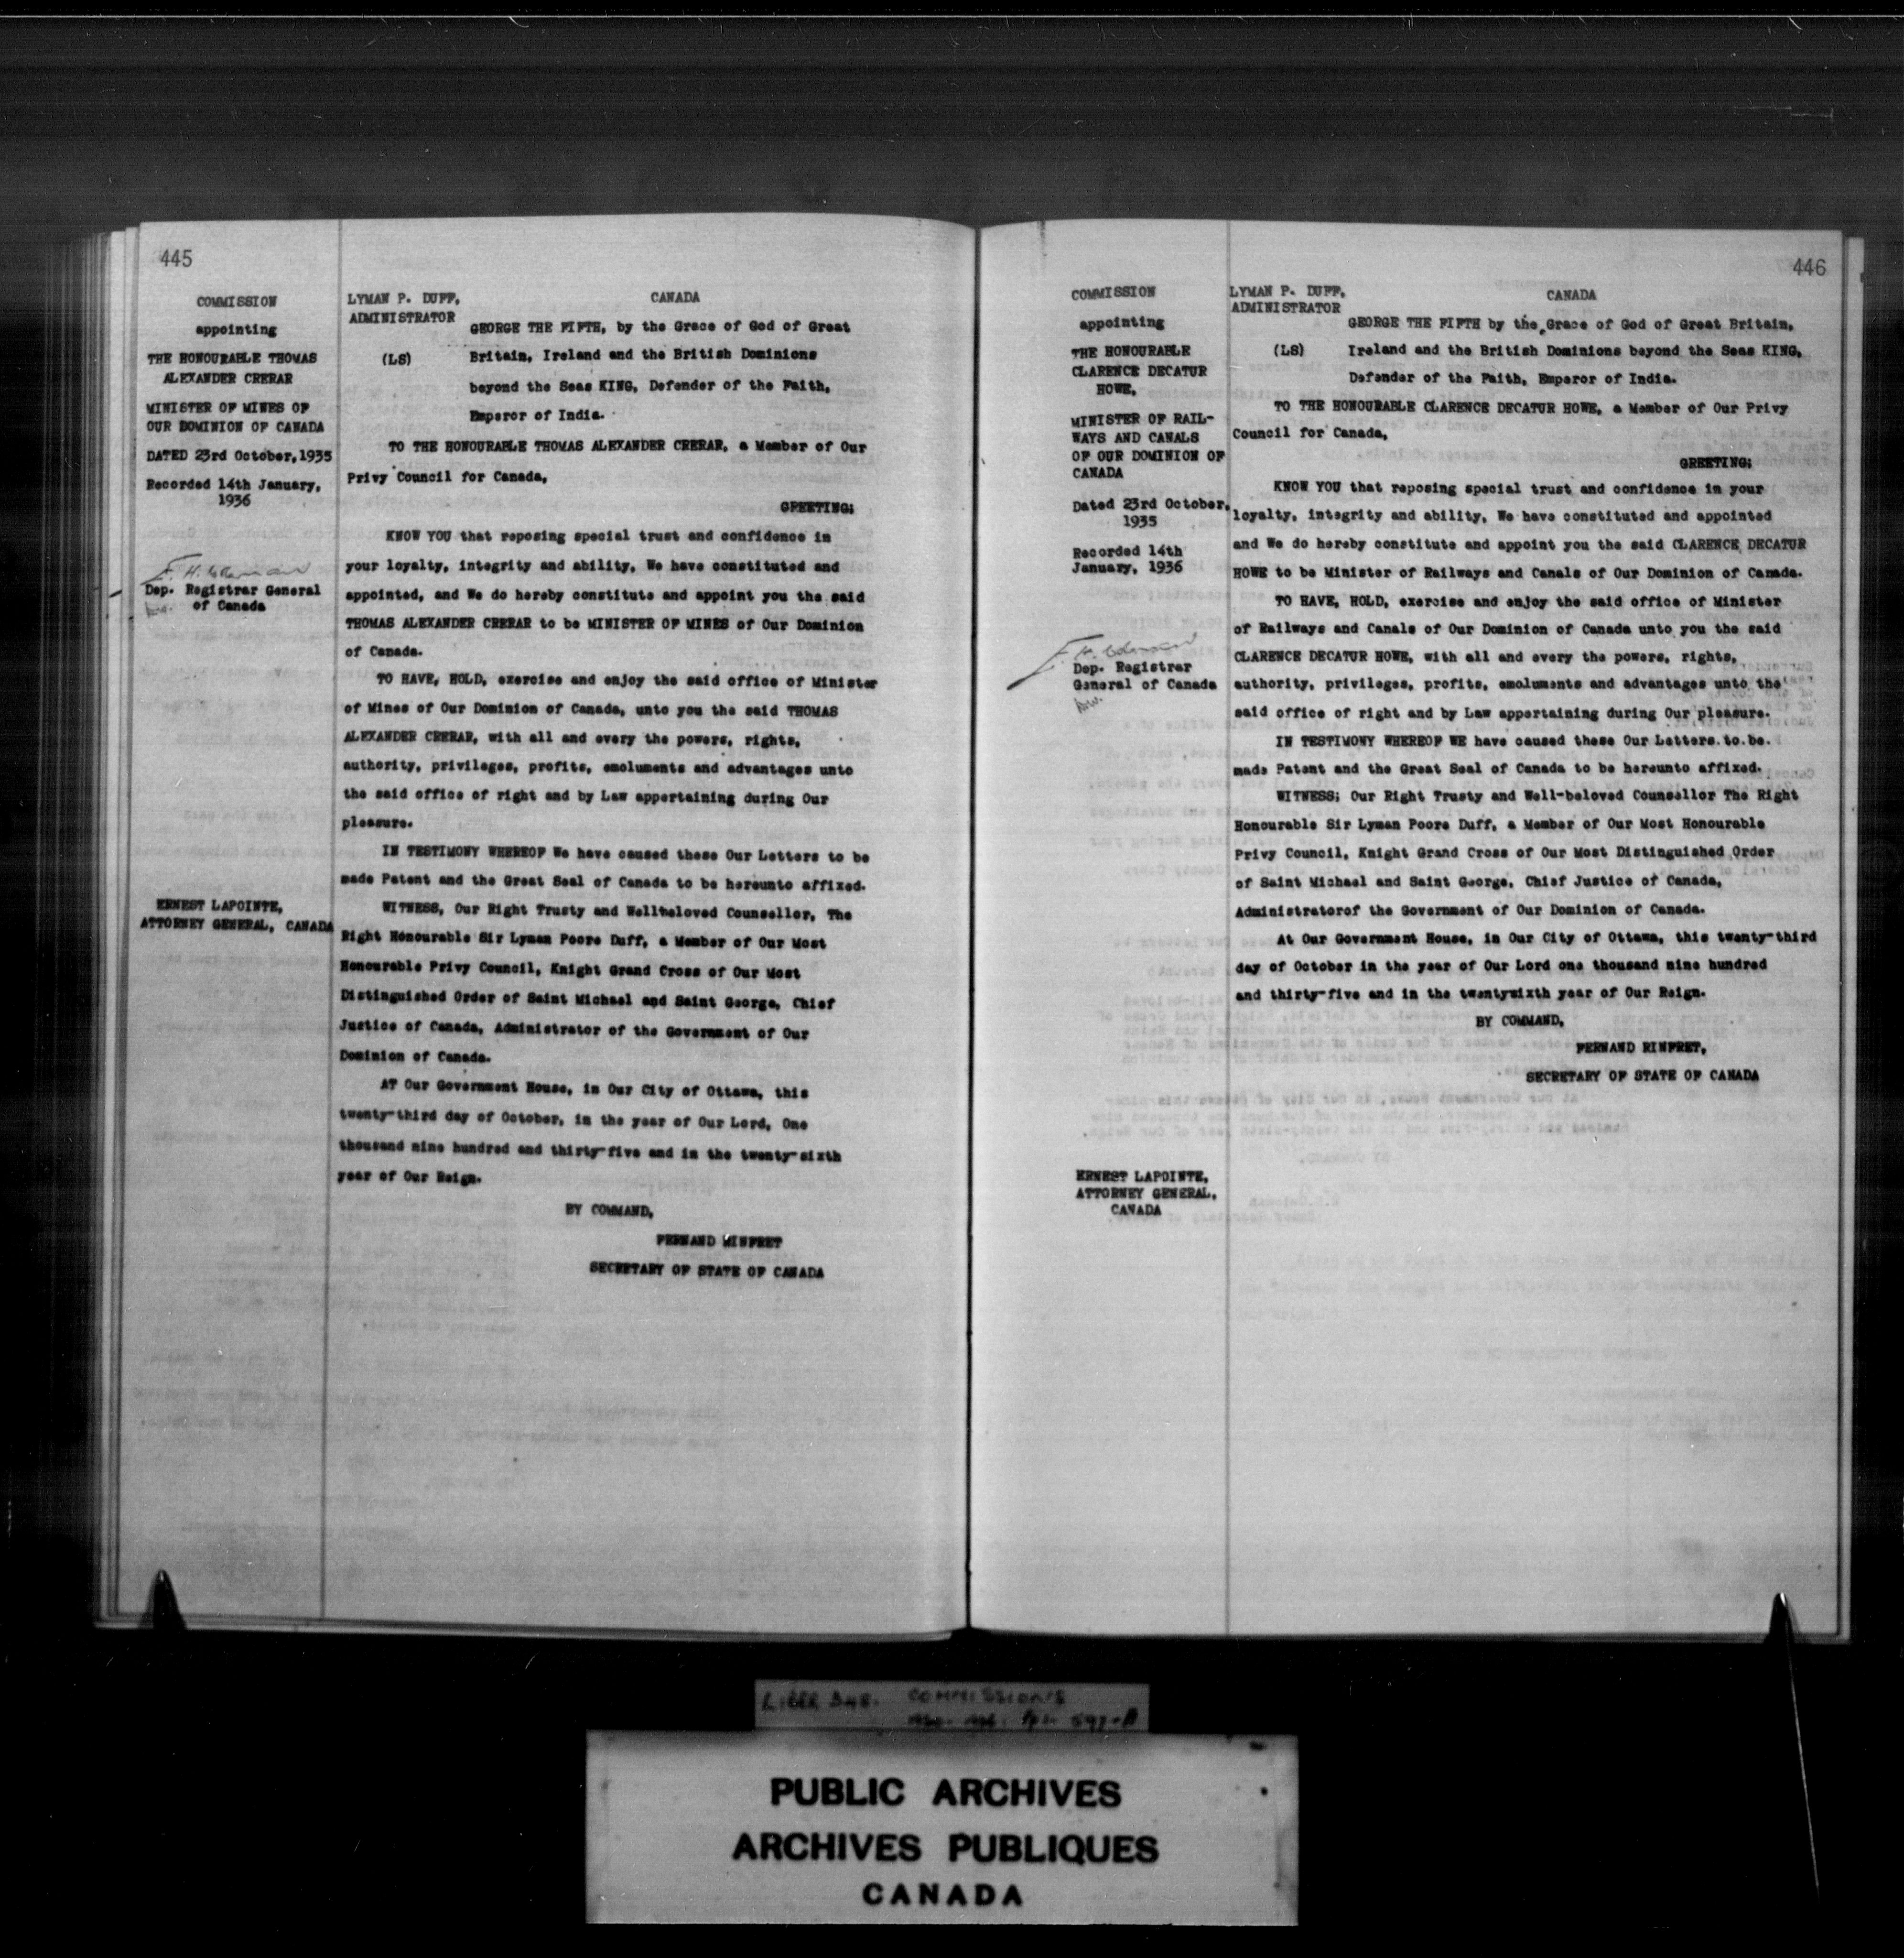 445
COMMISSION
appointing
THE HONOURABLE THOMAS
ALEXANDER CRERAR
MINISTER OF MINES OF
OUR DOMINION OF CANADA
DATED 23rd October, 1935
Recorded 14th January,
1936
Dep. Registrar General
of Canada
ERNEST LAPOINTE,
ATTORNEY GENERAL, CANADA
LYMAN P. DUFF,
ADMINISTRATOR
(LS)
CANADA
GEORGE THE FIFTH, by the Grace of God of Great
Britain, Ireland and the British Dominions
beyond the Seas KING, Defender of the Faith,
Emperor of India.
TO THE HONOURABLE THOMAS ALEXANDER CRERAR, a Member of Our
Privy Council for Canada,
GREETING:
KNOW YOU that reposing special trust and confidence in
your loyalty, integrity and ability, We have constituted and
appointed, and We do hereby constitute and appoint you the said
THOMAS ALEXANDER CRERAR to be MINISTER OF MINES of Our Dominion
of Canada.
TO HAVE, HOLD, exercise and enjoy the said office of Minister
of Mines of Our Dominion of Canada, unto you the said THOMAS
ALEXANDER CRERAR, with all and every the powers, rights,
authority, privileges, profits, emoluments and advantages unto
the said office of right and by Law appertaining during Our
pleasure.
IN TESTIMONY WHEREOF We have caused these Our Letters to be
made Patent and the Great Seal of Canada to be hereunto affixed.
WITNESS, Our Right Trusty and Wellbeloved Counsellor, The
Right Honourable Sir Lyman Poore Duff, a Member of Our Most
Honourable Privy Council, Knight Grand Cross of Our Most
Distinguished Order of Saint Michael and Saint George, Chief
Justice of Canada, Administrator of the Government of Our
Dominion of Canada.
AT Our Government House, in Our City of Ottawa, this
twenty-third day of October, in the year of Our Lord, One
thousand nine hundred and thirty-five and in the twenty-sixth
year of Our Reign.
BY COMMAND,
FERNAND RINFRET
SECRETARY OF STATE OF CANADA
446
COMMISSION
appointing
THE HONOURABLE
CLARENCE DECATUR
HOWE,
MINISTER OF RAIL-
WAYS AND CANALS
OF OUR DOMINION OF
CANADA
Dated 23rd October,
1935
Recorded 14th
January, 1936
Dep. Registrar
General of Canada
ERNEST LAPOINTE,
ATTORNEY GENERAL,
CANADA
LYMAN P. DUFF,
ADMINISTRATOR
(LS)
CANADA
GEORGE THE FIFTH by the Grace of God of Great Britain,
Ireland and the British Dominions beyond the Seas KING,
Defender of the Faith, Emperor of India.
TO THE HONOURABLE CLARENCE DECATUR HOWE, a Member of Our Privy
Council for Canada,
GREETING:
KNOW YOU that reposing special trust and confidence in your
loyalty, integrity and ability, We have constituted and appointed
and We do hereby constitute and appoint you the said CLARENCE DECATUR
HOWE to be Minister of Railways and Canals of Our Dominion of Canada.
TO HAVE, HOLD, exercise and enjoy the said office of Minister
of Railways and Canals of Our Dominion of Canada unto you the said
CLARENCE DECATUR HOWE, with all and every the powers, rights,
authority, privileges, profits, emoluments and advantages unto the
said office of right and by Law appertaining during Our pleasure.
IN TESTIMONY WHEREOF WE have caused these Our Letters to be
made Patent and the Great Seal of Canada to be hereunto affixed.
WITNESS; Our Right Trusty and Well-beloved Counsellor The Right
Honourable Sir Lyman Poore Duff, a Member of Our Most Honourable
Privy Council, Knight Grand Cross of Our Most Distinguished Order
of Saint Michael and Saint George, Chief Justice of Canada,
Administratorof the Government of Our Dominion of Canada.
At Our Government House, in Our City of Ottawa, this twenty-third
day of October in the year of Our Lord one thousand nine hundred
and thirty-five and in the twentysixth year of Our Reign.
BY COMMAND,
FERNAND RINFRET,
SECRETARY OF STATE OF CANADA
LIBER 348. COMMISSIONS
PUBLIC ARCHIVES
ARCHIVES PUBLIQUES
CANADA